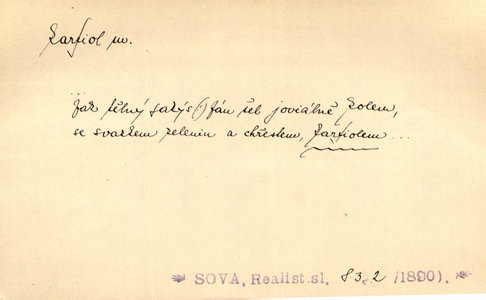 Karfiol m.
Jak tělný satýs(:) Ján šel joviálně kolem,
se svazkem zelenin a chřestem, karfiolem...
SOVA, Realist.sl. 83,2 (1890).